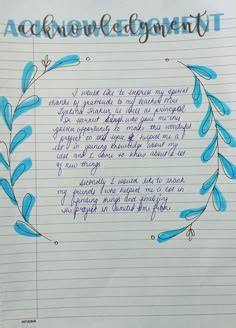 ACKNOWLEDGMENT
acknowledgment
I would like to express my special
thanks of gratitude to my teacher Mrs
as well as principal
who gave me the
golden opportunity to do this wonderful
project on the topic helped me a
lot in gaining knowledge about my
and I came to know about a lot
of new things.
Secondly I would like to thank
my friends who helped me a lot in
finding things and finalizing
project in limited time frame.